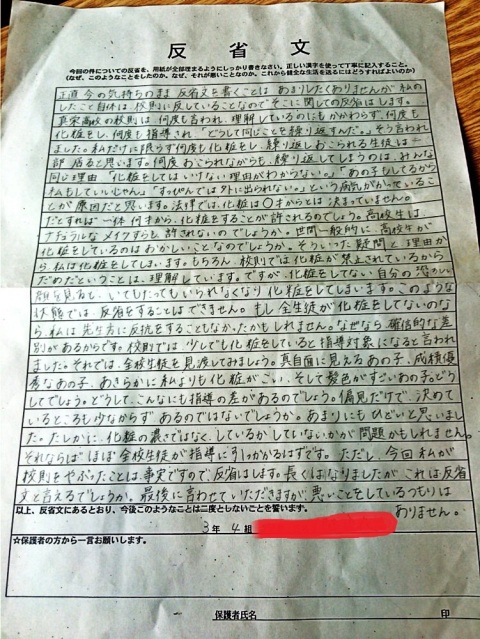 反省文
今回の件についての反省を、用紙が全部埋まるようにしっかり書きなさい。正しい漢字を使って丁寧に記入すること。
(なぜ、このようなことをしたのか。なぜ、それが悪いことなのか。これから健全な生活を送るにはどうすればよいのか)
正直今の気持ちのまま反省文を書くことはあまりしたくありませんが、私の
したこと自体は、校則に反していることなのでそこに関しての反省はします。
真栄高校の校則は、何度も言われ、理解しているのにもかかわらず、何度も
化粧をし、何度も指導され、「どうして同じことを繰り返すんだ。」そう言われ
ました。私だけに限らず何度も化粧をし、繰り返しおこられる生徒は一
部居ると思います。何度おこられながらも、繰り返してしまうのは、みんな
同じ理由「化粧をしてはいけない理由がわからない。」「あの子もしてるから
私もしていいじゃん。」「すっぴんでは外に出られない。」という病気がかっている
ことが原因だと思います。法律では、化粧は○才からとは決まっていません。
だとすれば一体何才から、化粧をすることが許されるのでしょう。高校生は、
ナチュラルなメイクすらも許されないのでしょうか。世間一般的に、高校生が
化粧をしているのはおかしいことなのでしょうか。そういった疑問と理由か
ら、私は化粧をしてしまいます。もちろん、校則では化粧が禁止されているから
だめだということは、理解しています。ですが、化粧をしてない自分の
顔を見ると、いてもたってもいられなくなり化粧をしてしまいます。このような
状態では、反省をすることはできません。もし全生徒が化粧をしてないのな
ら、私は先生方に反抗をすることもなかったかもしれません。なぜなら、確信的な差
別があるからです。校則では、少しでも化粧をしていると指導対象になると言われ
ました。それでは、全校生徒を見渡してみましょう。真自面に見えるあの子、成積優
秀なあの子、あきらかに私よりも化粧がこい、そして髪色がすごいあの子。どう
してでしょう。どうして、こんなにも指導の差があるのでしょう。偏見だけで、決めて
いるところも少なからずあるのではないでしょうか。あまりにもひどいと思いまし
た。たしかに、化粧の濃さではなく、しているかしていないかが問題かもしれません。
それならばほぼ全校生徒が指導に引っかかるはずです。ただし、今回私が
校則をやぶったことは事実ですので、反省はします。長くはなりましたが、これは反省
文と言えるでしょうか。最後に言わせていただきますが、悪いことをしているつもりは
ありません。
以上、反省文にあるとおり、今後このようなことは二度としないことを誓います。
3年 4組
☆保護者の方から一言お願いします。
保護者氏名 印